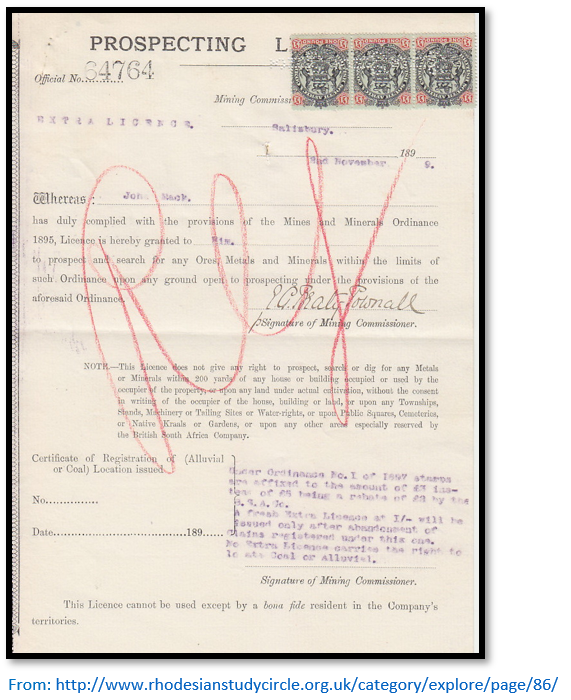 PROSPECTING L
Official No. 64764
Mining Commissi
EXTRA LICENCE.
Salisbury.
2nd November 1899.
Whereas: John Mack.
has duly complied with the provisions of the Mines and Minerals Ordinance
1895, Licence is hereby granted to Him.
to prospect and search for any Ores, Metals and Minerals within the limits of
such Ordinance upon any ground open to prospecting under the provisions of the
aforesaid Ordinance.
Signature of Mining Commissioner.
NOTE.—This Licence does not give any right to prospect, search or dig for any Metals
or Minerals within 200 yards of any house or building occupied or used by the
occupier of the property, or upon any land under actual cultivation, without the consent
in writing of the occupier of the house, building or land, or upon any Townships,
Stands, Machinery or Tailing Sites or Water-rights, or upon Public Squares, Cemeteries,
or Native Kraals or Gardens, or upon any other areas especially reserved by
the British South Africa Company.
Certificate of Registration of (Alluvial
or Coal) Location issued
No...............
Date........................................189......
Under Ordinance No.I of 1897 stamps
are affixed to the amount of £3 ins-
tead of £5 being a rebate of £2 by the
B.S.A.Co.
A fresh Extra Licence at I/- will be
issued only after abandonment of
claims registered under this one.
No Extra Licence carries the right to
lo ate Coal or Alluvial.
Signature of Mining Commissioner.
This Licence cannot be used except by a bona fide resident in the Company's
territories.
From: http://www.rhodesianstudycircle.org.uk/category/explore/page/86/